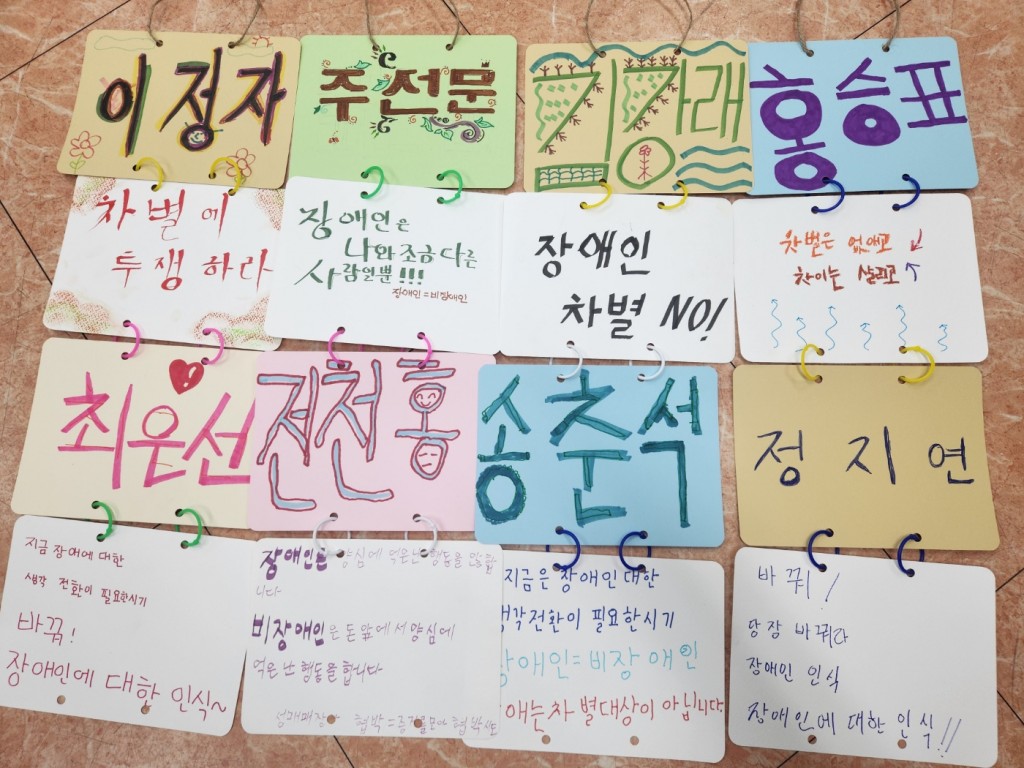 이정자
차별에
투쟁하라
주선문
장애인은
나와 조금 다른
사람일뿐!!!
장애인=비장애인
기가래
장애인
차별 NO!
홍승표
차별은 없애고
차이는 살리고
최은선
지금 장애에 대한
생각 전환이 필요한시기
바꿈!
장애인에 대한 인식~
전천홍
장애인은 양심에 어긋난 행동을 안합
니다
비장애인은 돈 앞에서 양심에
어긋난 행동을 합니다
송춘석
지금은 장애인대한
생각전환이 필요한시기
장애인=비장애인
애는차별대상이 아닙니다
정지연
바꿔!
당장 바꿔라
장애인 인식
장애인에 대한 인식!!